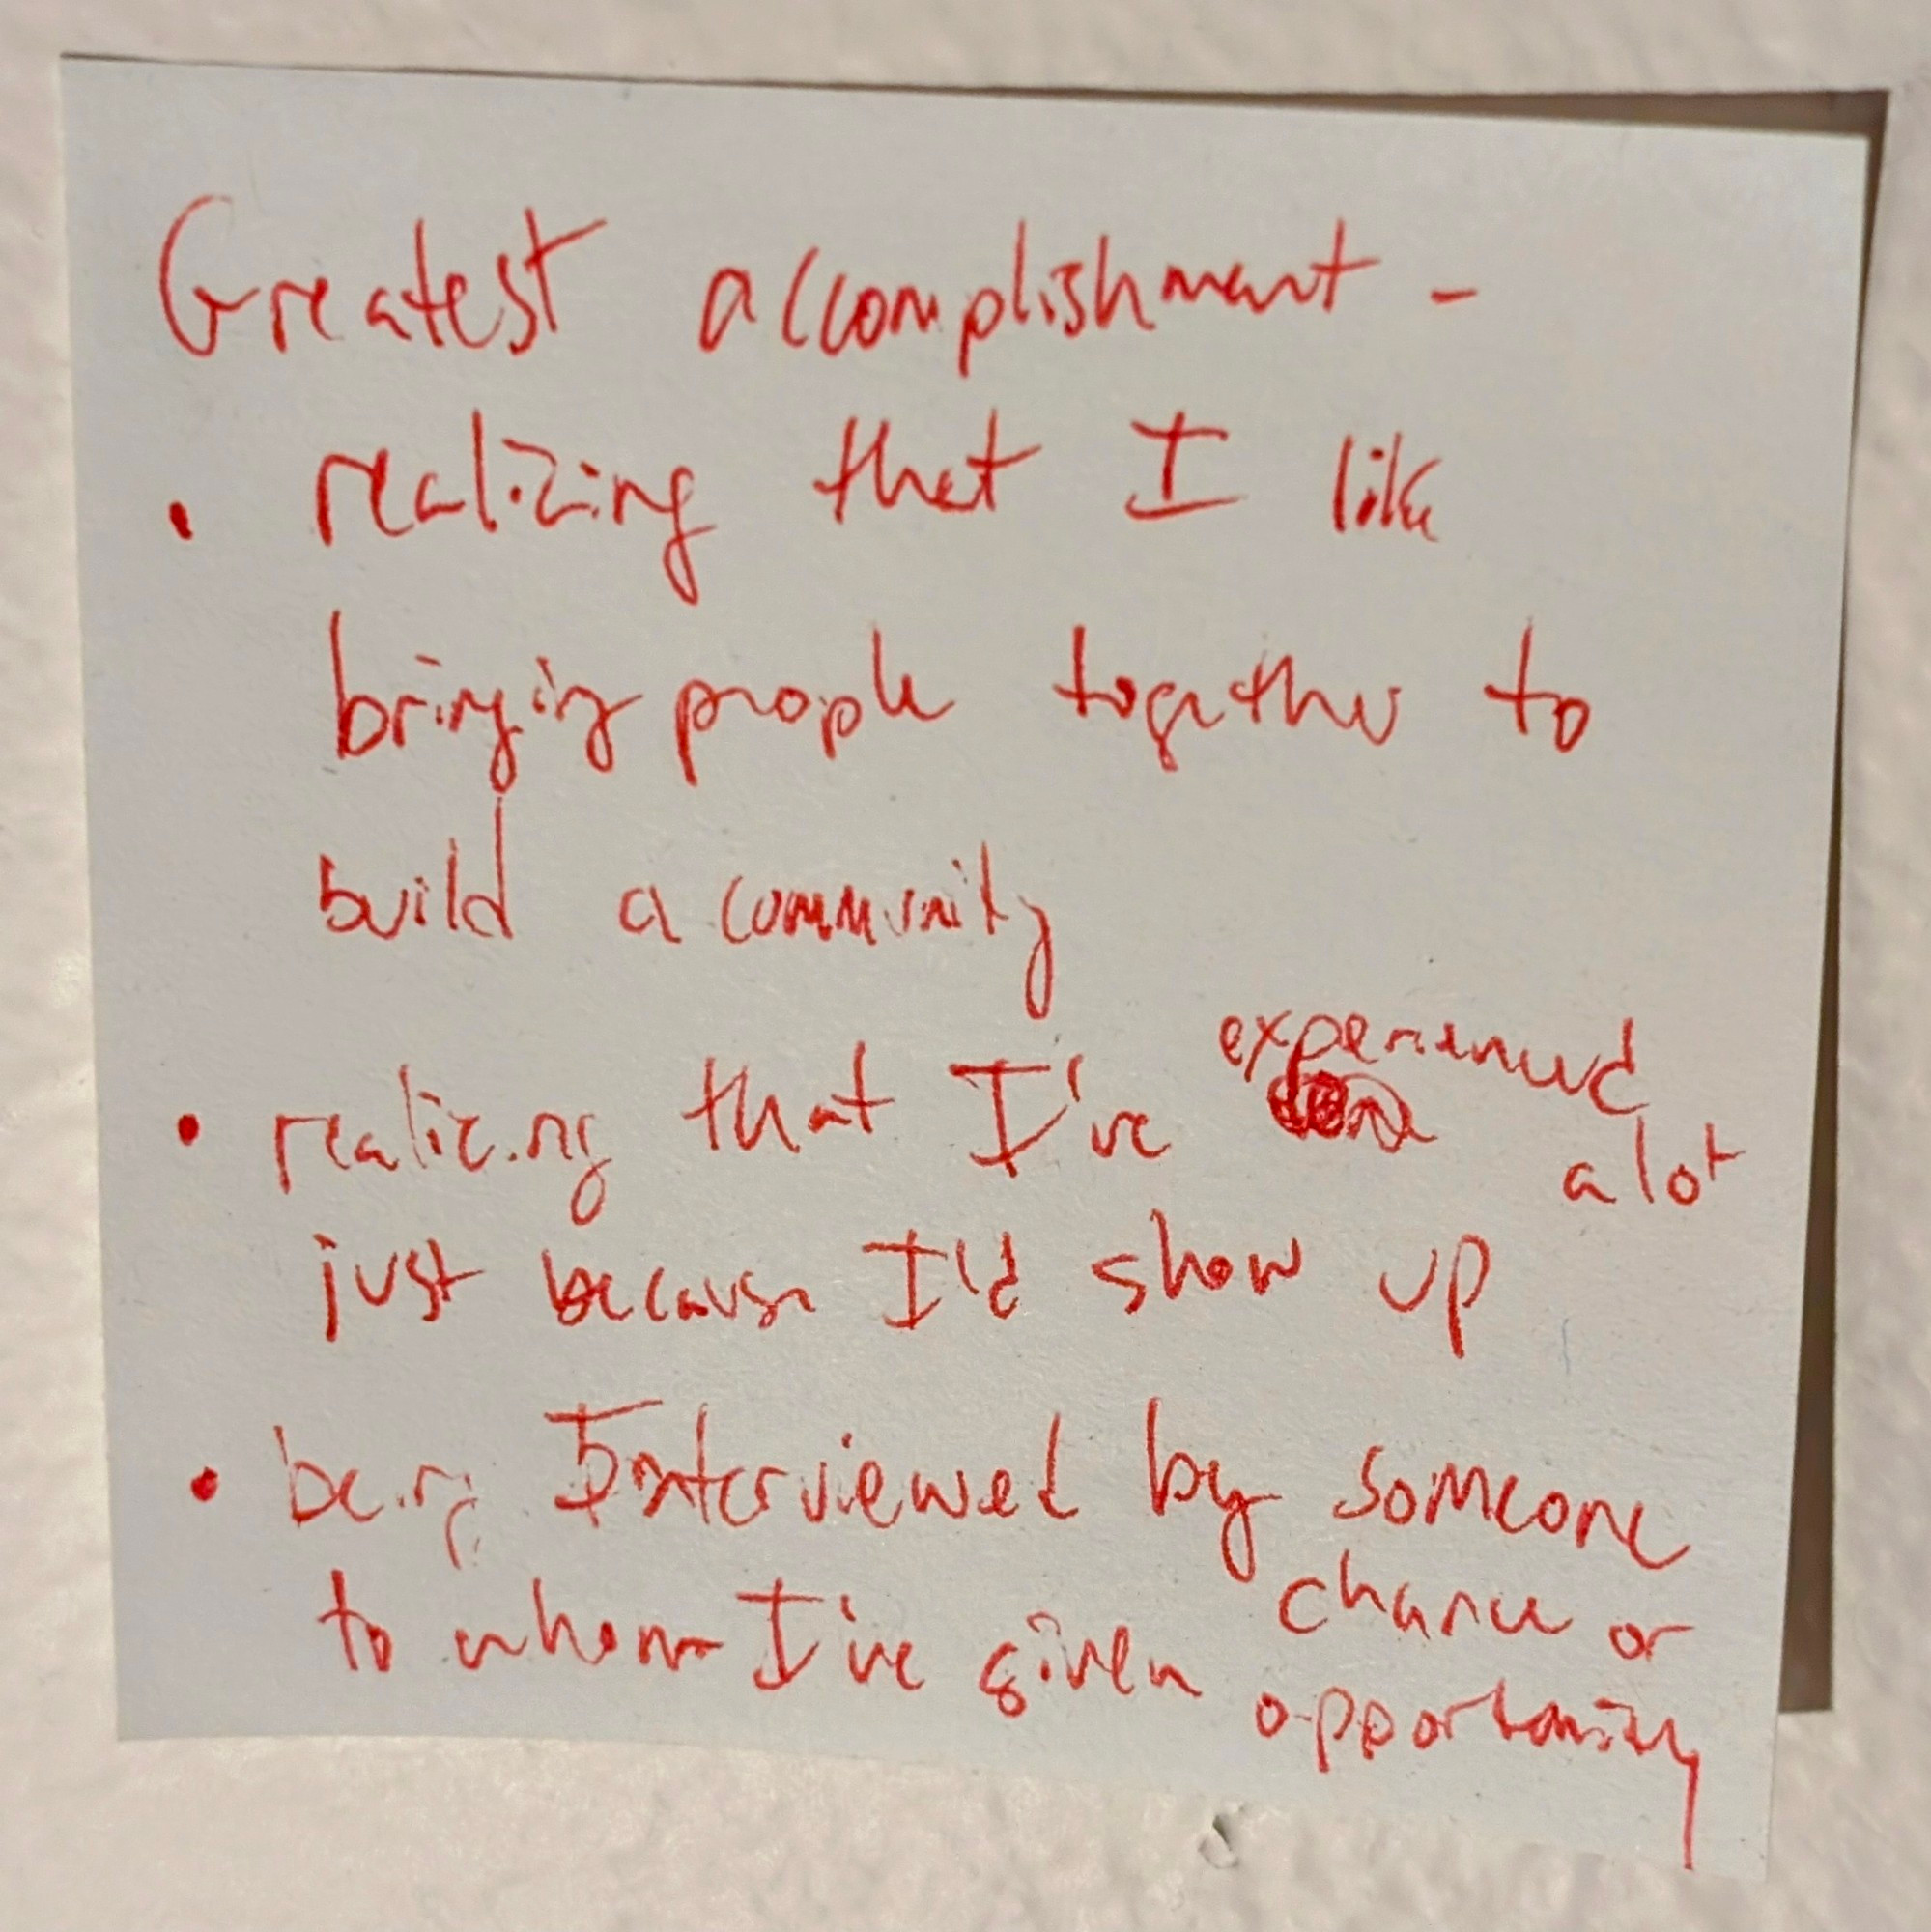 Greatest accomplishment -
• realizing that I like
bringing people together to
build a community
• realizing that I've experienced a lot
just because I'd show up
• being Interviewed by someone
to whom I've given chance or
opportunity